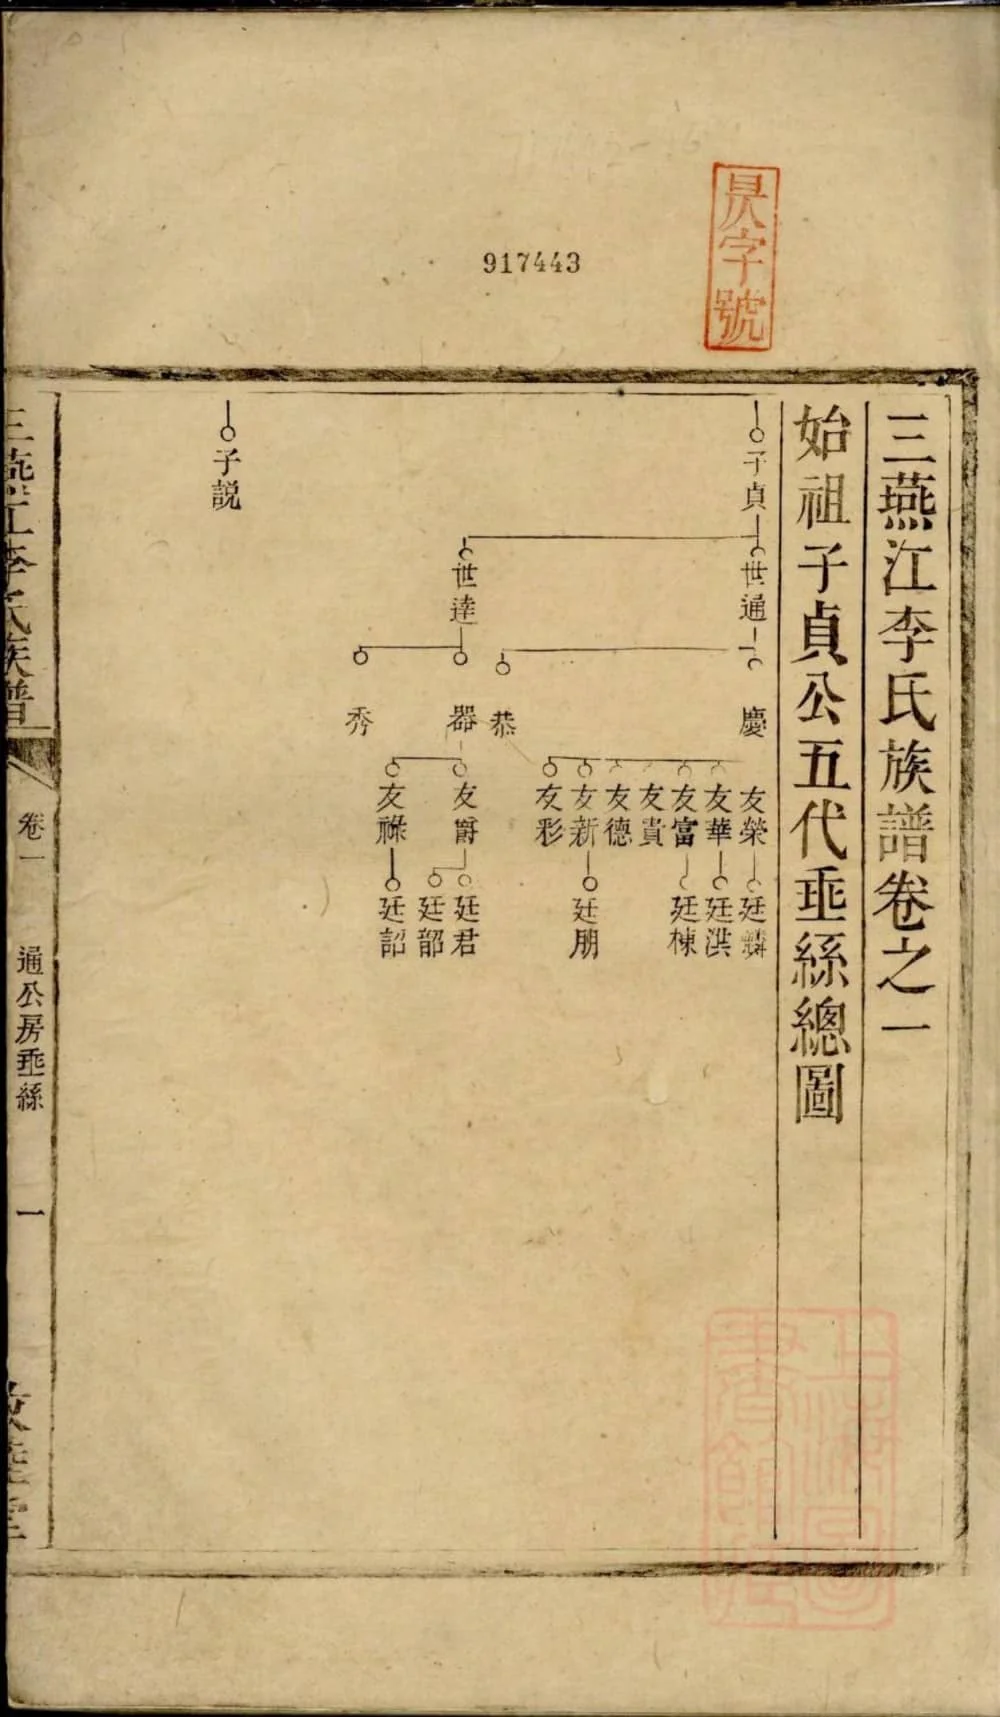 昃字號
917443
三燕江李氏族譜卷之一
始祖子貞公五代垂絲總圖
子貞
世通
慶
友榮
廷麟
友華
廷洪
友富
廷棟
友貴
友德
友新
廷朋
友彩
恭
世達
器
友爵
廷君
廷韶
友祿
廷詔
秀
子説
三燕江李氏族譜
卷一
通公房垂絲
一
敦睦堂
上海圖書館藏